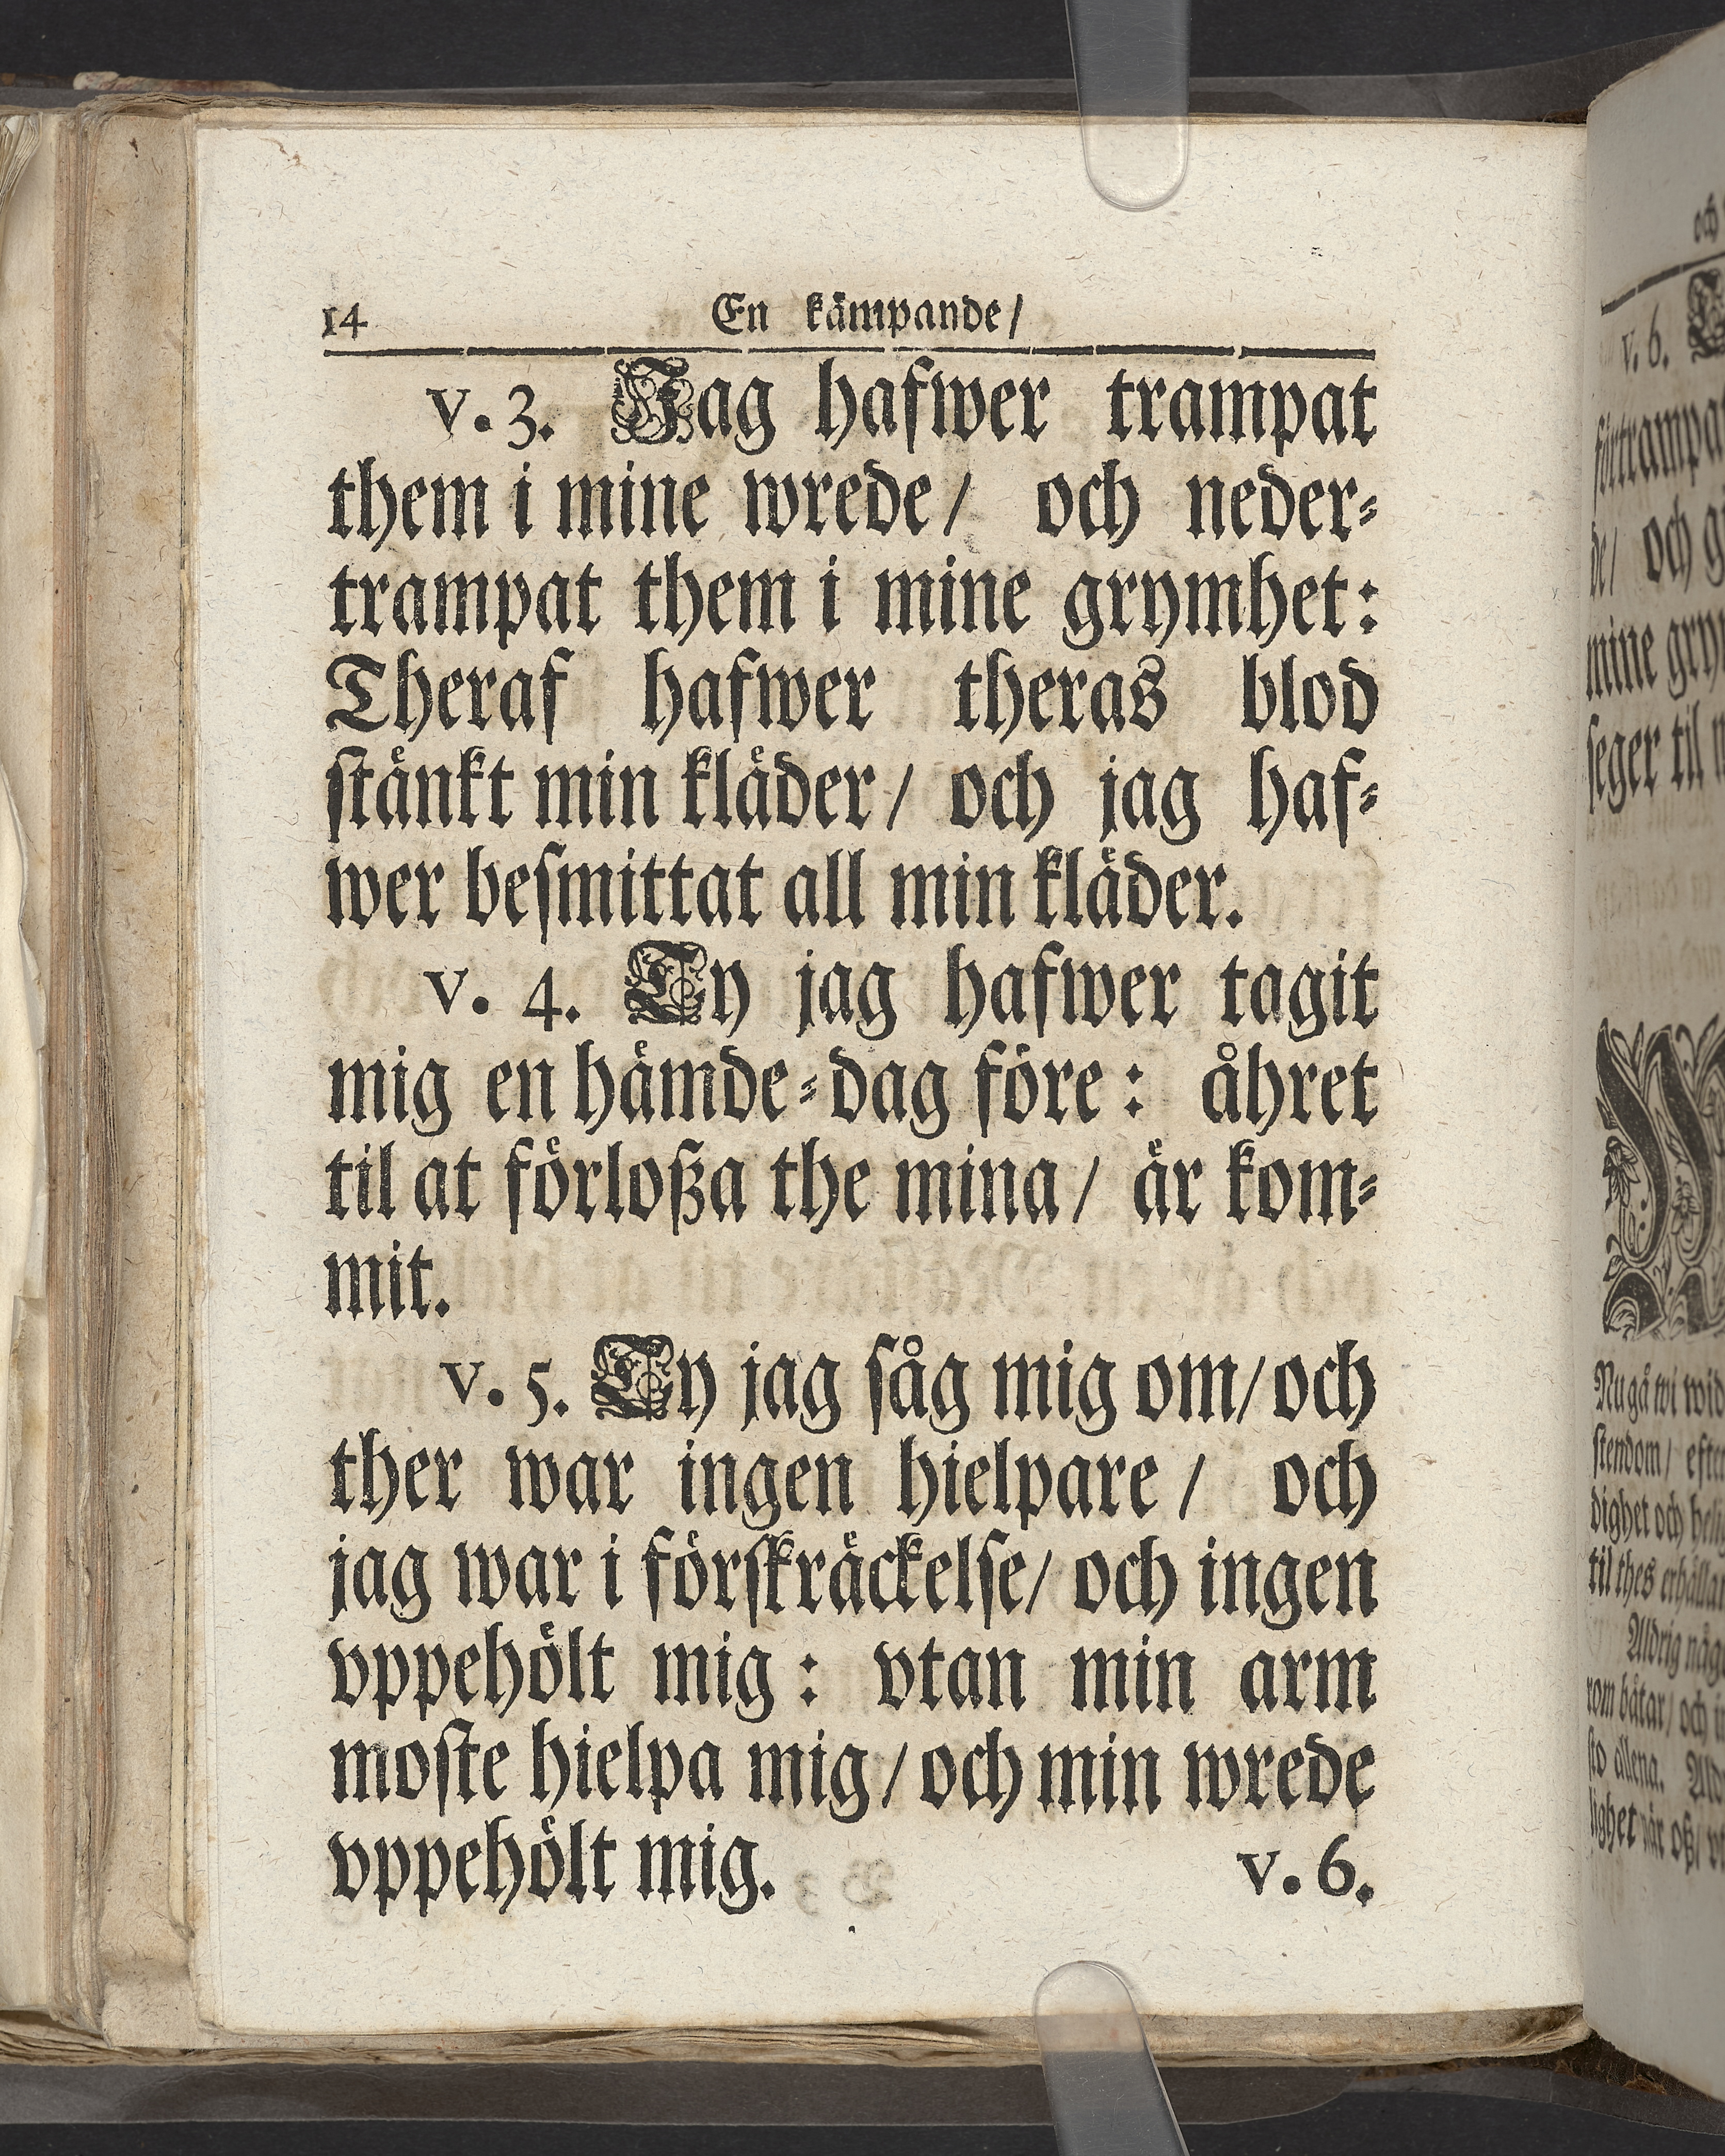 14 En kämpande/
v. 3. Jag hafwer trampat
them i mine wrede/ och neder-
trampat them i mine grymhet:
Theraf hafwer theras blod
stänkt min kläder/ och jag haf-
wer besmittat all min kläder.
v. 4. Ty jag hafwer tagit
mig en hämde-dag före: åhret
til at förloßa the mina/ är kom-
mit.
v. 5. Ty jag såg mig om/ och
ther war ingen hielpare/ och
jag war i förskräckelse/ och ingen
vppehölt mig: vtan min arm
moste hielpa mig/ och min wrede
vppehölt mig. v. 6.
och
v. 6.
de/ och
mine
seger til
Nu gå wi
stendom/
dighet och
til thes
Aldrig
båtar/ och
allena.
när oß/